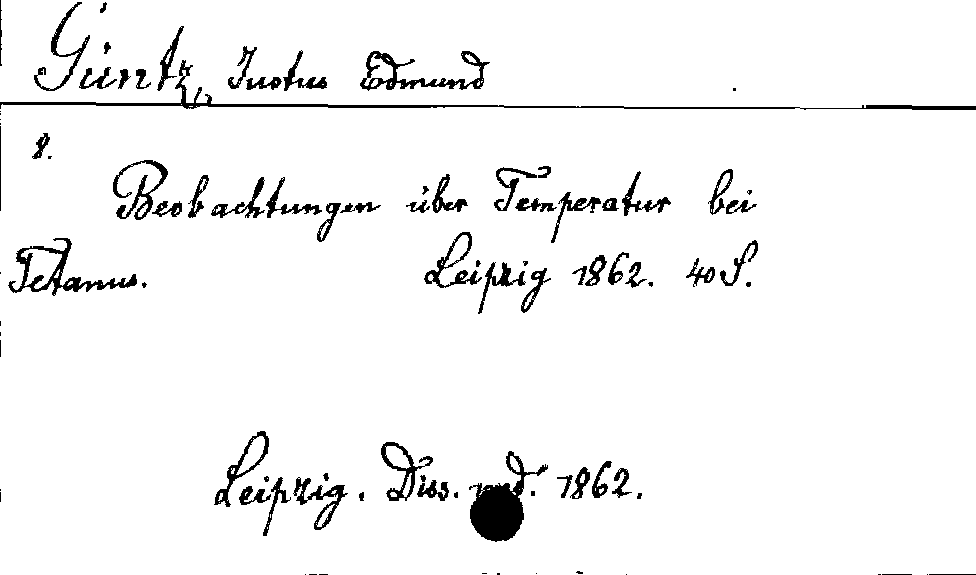 Güntz, Justus Edmund
8.
Beobachtungen über Temperatur bei
Tetanus. Leipzig 1862. 40 S.
Leipzig. Diss. med. 1862.